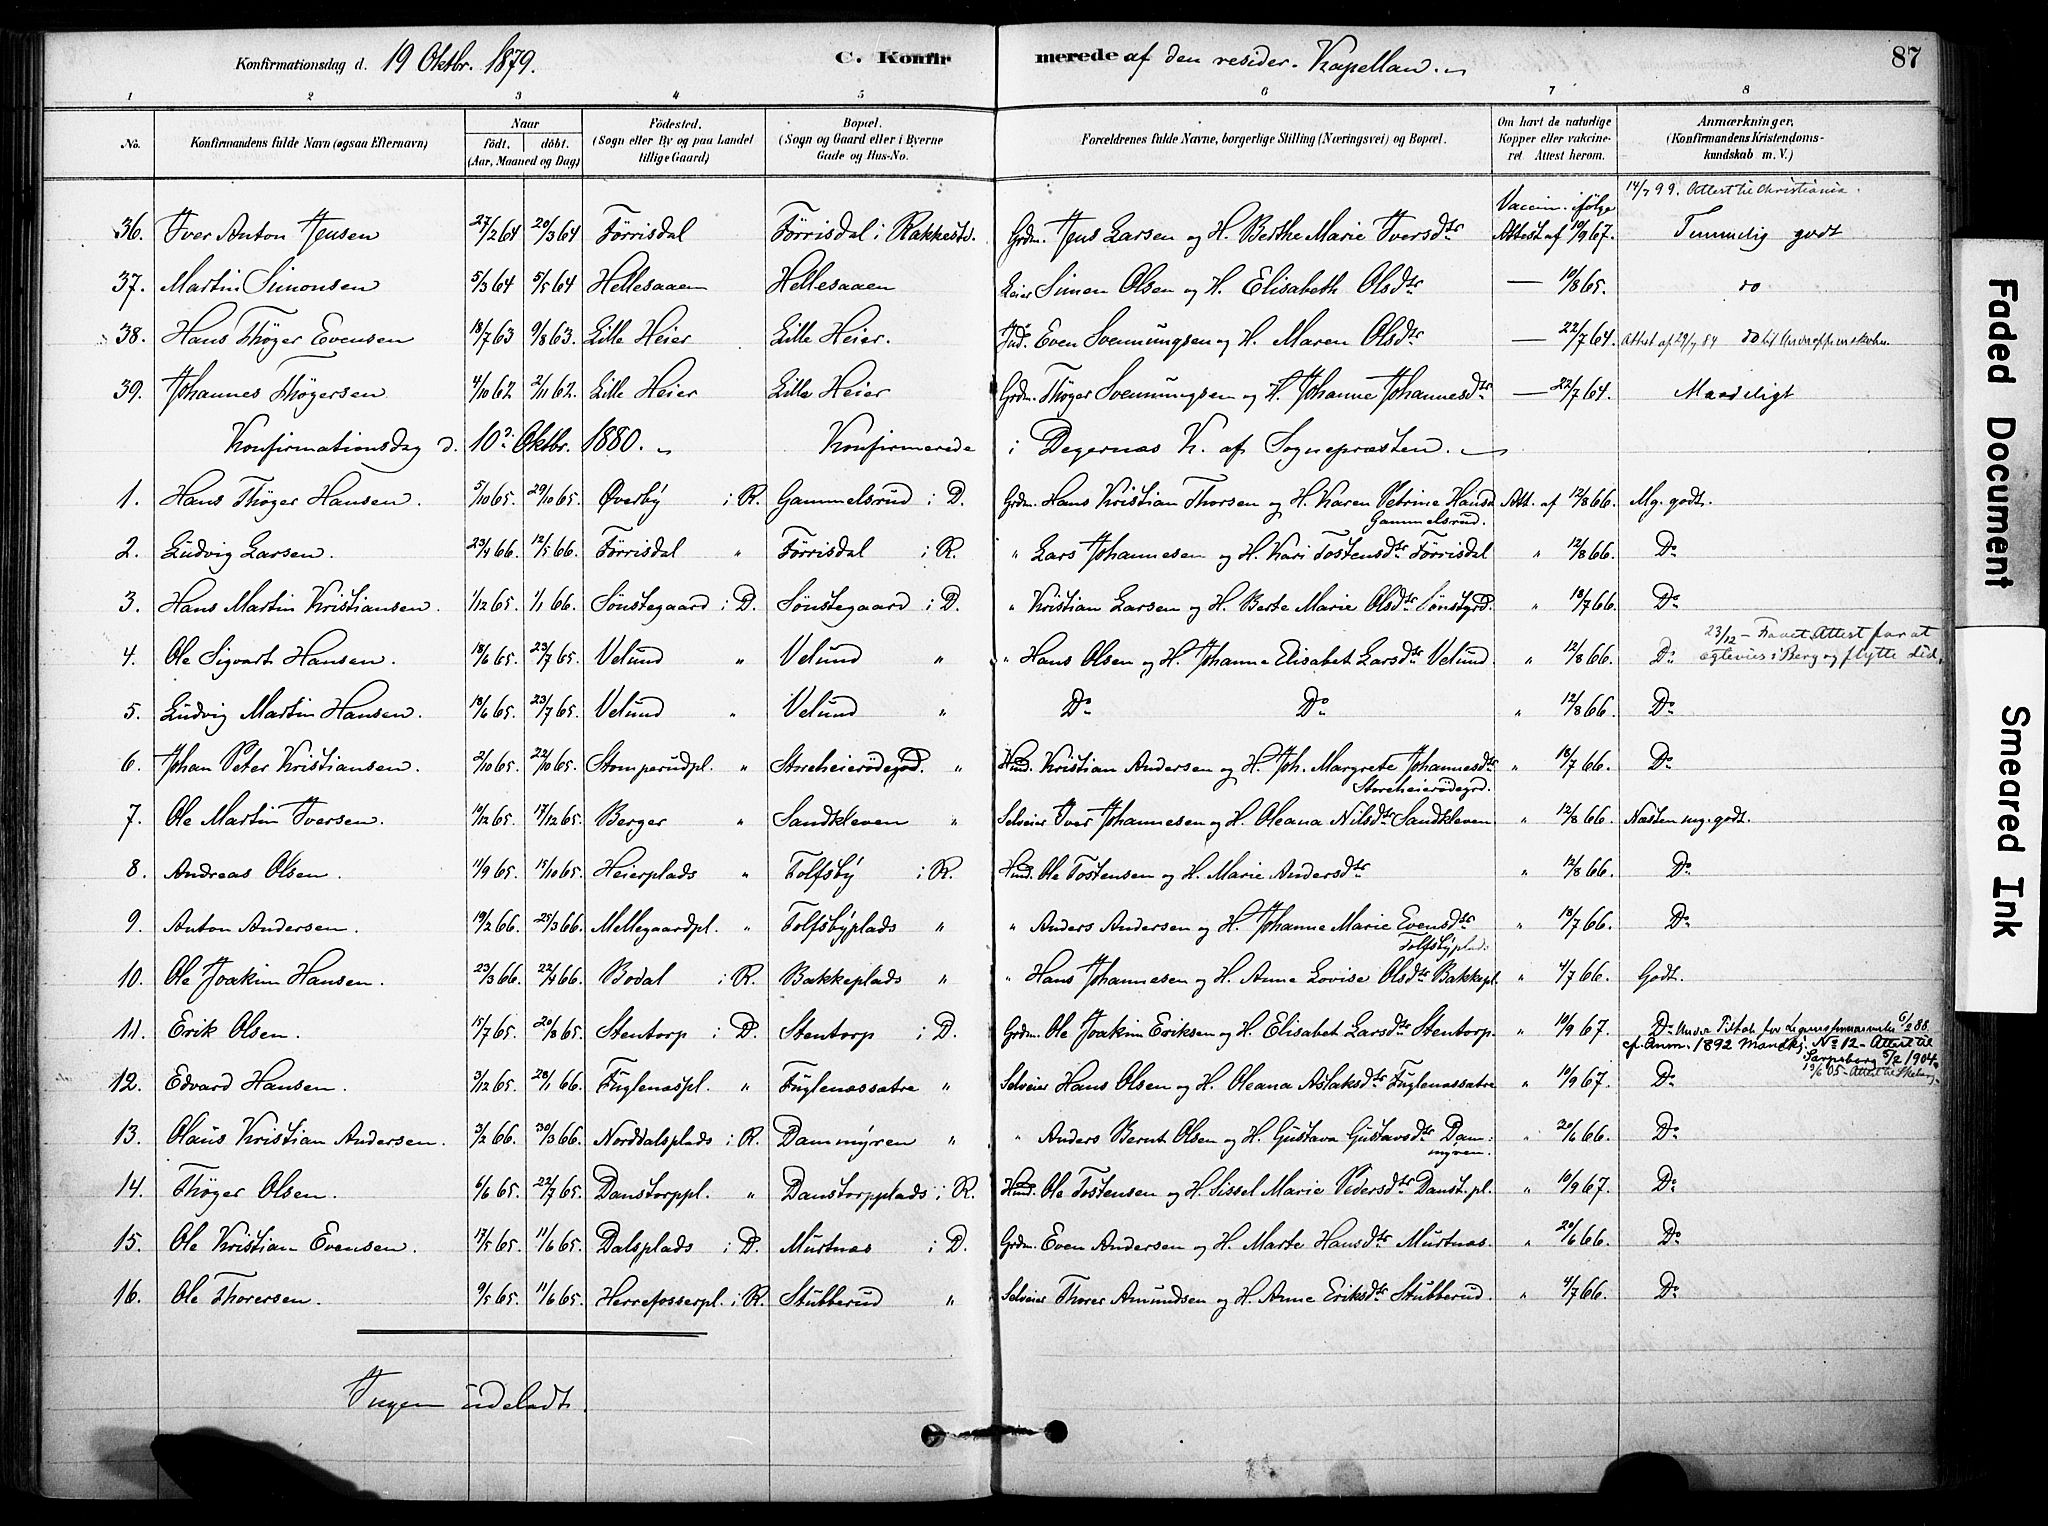 Konfirmationsdag d. 19 Oktbr. 1879. C. Konfirmerede af den resider. Kapellan. 87
1 2 3 4 5 6 7 8
No. Konfirmandens fulde Navn (ogsaa Efternavn) Naar født. døbt. (Aar, Maaned og Dag) Fødested. (Sogn eller By og paa Landet tillige Gaard) Bopæl. (Sogn og Gaard eller i Byerne Gade og Hus-No. Forældrenes fulde Navne, borgerlige Stilling (Næringsvei) og Bopæl. Om havt de naturlige Kopper eller vaccineret. Attest herom. Anmærkninger. (Konfirmandens Kristendomskundskab m. V.)
Vaccin. ifølge 14/7 99. Attest til Christiania.
36. Iver Anton Jensen 27/2 64 20/3 64 Førrisdal Førrisdal i Rakkestd. Grdm. Jens Larsen og H. Berthe Marie Iversdtr Attest af 10/9 67. Temmelig godt
37. Martin Simonsen 5/3 64 5/5 64 Hellesaaen Hellesaaen Leier Simen Olsen og H. Elisabeth Olsdtr — 10/8 65. do
38. Hans Thøger Evensen 18/7 63 9/8 63. Lille Heier Lille Heier. Ind. Even Svennungsen og H. Maren Olsdtr — 22/7 64. Attest af 29/7 84 do til
39. Johannes Thøgersen 4/10 62 2/11 62. Lille Heier Lille Heier Grdm. Thøger Svennungsen og H. Johanne Johannesdtr — 22/7 64. Maadeligt
Konfirmationsdag d. 10de Oktbr. 1880. Konfirmerede i Degernæs K. af Sognepræsten.
1. Hans Thøger Hansen. 5/10 65. 29/10 65. Øverby i R. Gammelsrud i D. Grdm. Hans Kristian Thorsen og H. Karen Petrine Hansd Att. af 12/8 66. Mg. godt.
Gammelsrud.
2. Ludvig Larsen. 23/4 66. 12/5 66. Førrisdal " Førrisdal i R. " Lars Johannesen og H. Kari Tostensdtr Førrisdal " 12/8 66. Do
3. Hans Martin Kristiansen. 1/12 65. 1/1 66. Sønstegaard i D. Sønstegaard i D. " Kristian Larsen og H. Berte Marie Olsdtr Sønstgrd. " 18/7 66. Do
23/12 - Faaet Attest for at
4. Ole Sigvart Hansen. 18/6 65. 23/7 65. Velund " Velund " " Hans Olsen og H. Johanne Elisabet Larsdtr Velund. " 12/8 66. Do egtevies i Berg og flytte did.
5. Ludvig Martin Hansen. 18/6 65. 23/7 65. Velund " Velund " Do Do " 12/8 66. Do
6. Johan Peter Kristiansen. 2/10 65. 22/10 65. Stomperudpl. " Storeheierødegrd. " Husd. Kristian Andersen og H. Joh. Margrete Johannesdtr " 18/7 66. Do
Storeheierødegrd.
7. Ole Martin Iversen. 10/12 65. 17/12 65. Berger " Sandkleven " Selveier Iver Johannesen og H. Oleana Nilsdtr Sandkleven " 12/8 66. Næsten mg. godt.
8. Andreas Olsen. 11/9 65. 15/10 65. Heierplads " Tolfsby i R. Husd. Ole Tostensen og H. Marie Andersdtr " 12/8 66. Do
9. Anton Andersen. 19/2 66. 25/3 66. Mellegaardpl. " Tolfsbyplads " " Anders Andersen og H. Johanne Marie Evensdtr " 18/7 66. Do
Tolfsbyplads
10. Ole Joakim Hansen. 23/3 66. 22/4 66. Bodal i R. Bakkeplads " " Hans Johannesen og H. Anne Lovise Olsdtr Bakkepl. " 4/7 66. Godt.
11. Erik Olsen. 15/7 65. 20/8 65. Stentorp i D. Stentorp i D. Grdm. Ole Joakim Eriksen og H. Elisabet Larsdtr Stentorp. " 10/9 67. Do 6/2 88
cf. Anm. 1892 Mandkj. No 12 - Attest til
Sarpsborg 5/2 1904.
12. Edvard Hansen. 3/12 65. 28/1 66. Fuglenæspl. " Fuglenæssætre " Selveier Hans Olsen og H. Oleana Aslaksdtr Fuglenæssætre " 10/9 67. Do 19/6 05 - Attest til Skeberg
13. Olaus Kristian Andersen. 3/2 66. 30/3 66. Norddalsplads i R. Dammyren " " Anders Bernt Olsen og H. Gustava Gustavsdtr Dam- " 20/6 66. Do
myren.
14. Thøger Olsen. 6/6 65. 22/7 65. Danstorppl. " Danstorpplads i R. Husd. Ole Tostensen og H. Sissel Marie Pedersdtr Danst.pl. " 10/9 67. Do
15. Ole Kristian Evensen. 17/5 65. 11/6 65. Dalsplads i D. Murtnæs i D. Grdm. Even Andersen og H. Marte Hansdtr Murtnæs. " 20/6 66. Do
16. Ole Thorersen. 9/5 65. 11/6 65. Herrefosserpl. i R. Stubberud " Selveier Thorer Amundsen og H. Anne Eriksdtr Stubberud. " 4/7 66. Do
Ingen udeladt.
Faded Document
Smeared Ink